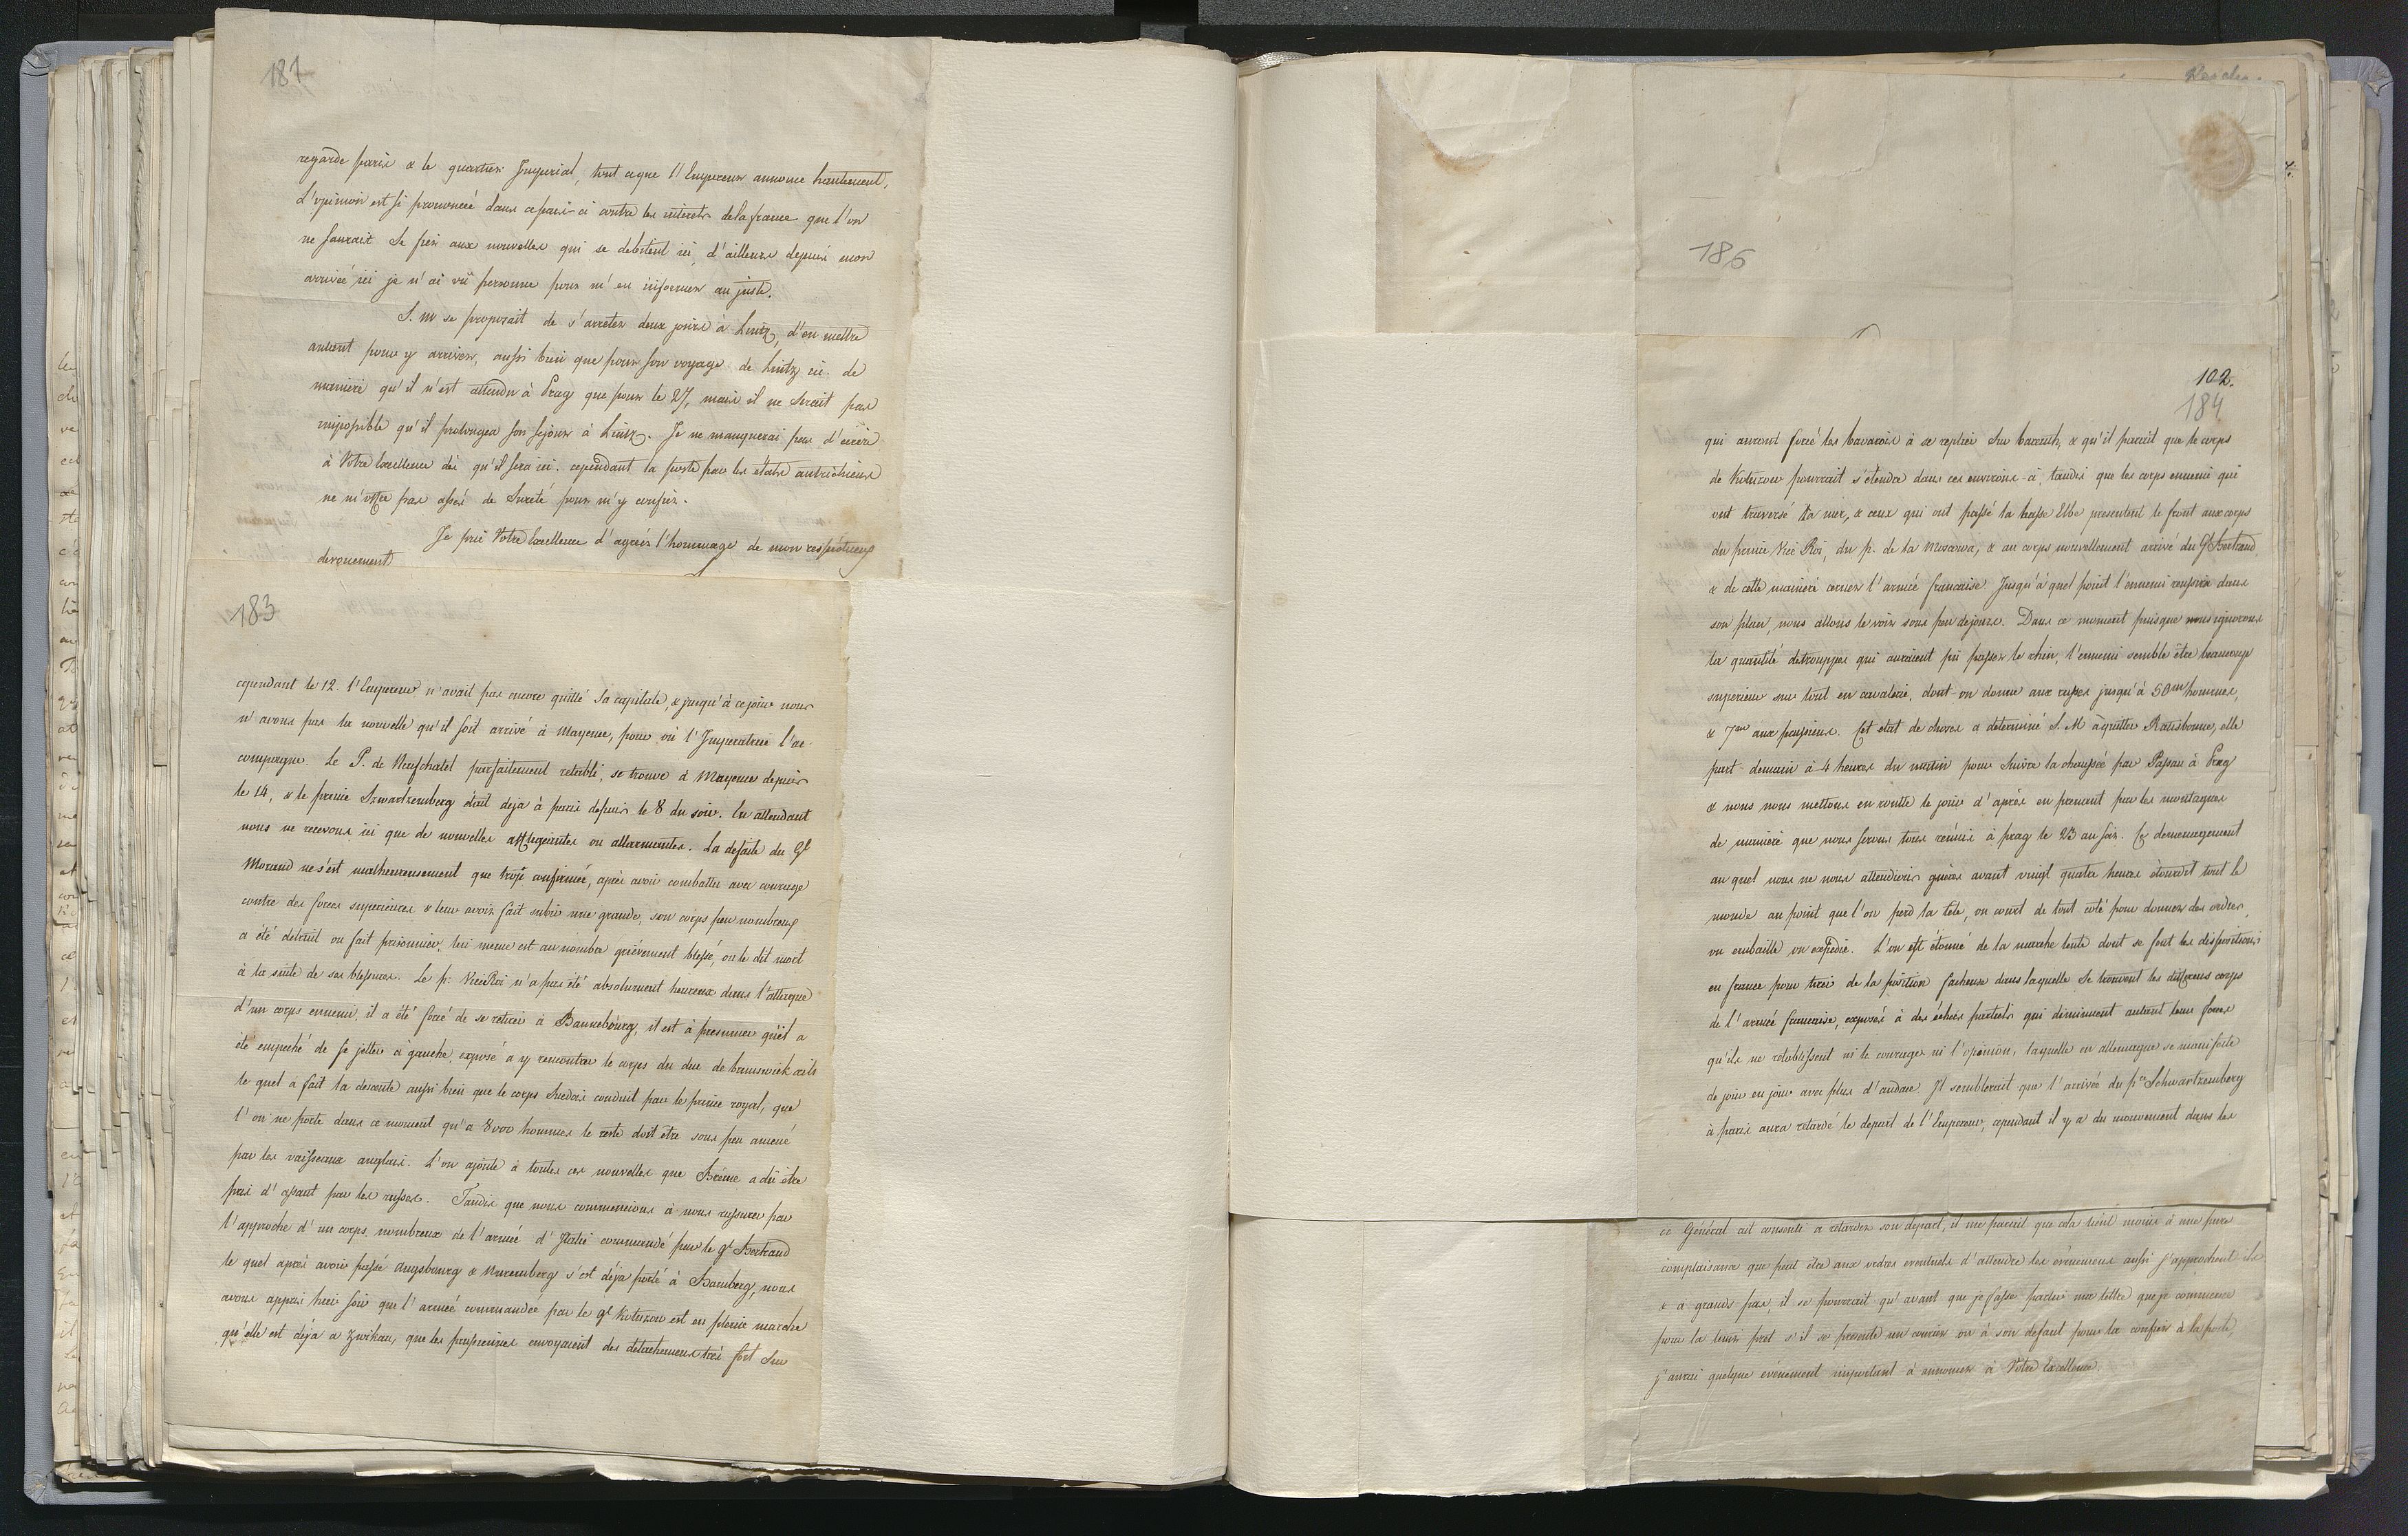 181
regarde paris & le quartier Imperial, tout ce que l'Empereur annonce hautement,
l'opinion est si prononcée dans ce pais-ci contre les interets de la france que l'on
ne saurait se fier aux nouvelles qui se debitent ici, d'ailleurs depuis mon
arrivée ici je n'ai vû personne pour m'en informer au juste.
S. M se proposait de s'arreter deux jours à Lintz, d'en mettre
autant pour y arriver, aussi bien que pour son voyage de Lintz ici de
maniere qu'il n'est attendu à Prag que pour le 27, mais il ne serait pas
impossible qu'il prolongea son sejour à Lintz. Je ne manquerai pas d'ecrire
à Votre Excellence dès qu'il sera ici. cependant la poste par les états autrichiens
ne m'offre pas assés de Sureté pour m'y confier.
Je prie Votre Excellence d'agreer l'hommage de mon respectueux
devouement
183
cependant le 12. l'Empereur n'avait pas encore quitté sa capitale, & jusqu'à ce jour nous
n'avons pas la nouvelle qu'il soit arrivé à Mayence, pour où l'Imperatrice l'ac-
compagne. Le P. de Neufchatel parfaitement retabli, se trouve à Mayence depuis
le 14, & le prince Szwartzemberg était deja à paris depuis le 8 du soir. En attendant
nous ne recevons ici que de nouvelles affligeantes ou allarmantes. La defaite du Gl
Morand ne s'est malheureusement que trop confirmée, après avoir combattu avec courage
contre des forces superieures & leur avoir fait subir une grande, son corps peu nombreux
a été detruit ou fait prisonnier, lui meme est au nombre grièvement blessé, on le dit mort
à la suite de ses blessures. Le p: ViceRoi n'a pas été absolument heureux dans l'attaque
d'un corps ennemi, il a été forcé de se retirer à Bannebourg, il est à presumer qu'il a
été empeché de se jetter à gauche, exposé a y rencontrer le corps du duc de brunswick
le quel a fait la descente aussi bien que le corps Suedois conduit par le prince royal, que
l'on ne porte dans ce moment qu'a 8000 hommes le reste doit être sous peu amené
par les vaisseaux anglais. L'on ajoute à toutes ces nouvelles que Brême a dû être
pris d'assaut par les russes. Tandis que nous commencions à nous rassurer par
l'approche d'un corps nombreux de l'armée d'Italie commandé par le gl Bertrand
le quel après avoir passé Augsbourg & Nuremberg s'est déja porté à Bamberg, nous
avons appris hier soir que l'armée commandée par le gl Kutuzow est en pleine marche
qu'elle est déja a Zwikau, que les prussiennes envoyaient des detachemens très fort sur
186
102.
184
qui auront forcé les bavarois à se replier sur bareuth, & qu'il parait que le corps
de Kutuzow pourrait s'etendre dans ces environs-ci, tandis que les corps ennemis qui
ont traversé la mer, & ceux qui ont passé la basse Elbe presentent le front aux corps
du prince Vice Roi, du p. de la Moscowa, & au corps nouvellement arrivé du Gl Bertrand,
& de cette maniere cerner l'armée francaise. Jusqu'à quel point l'ennemi reussira dans
son plan, nous allons le voir sous peu de jours. Dans ce moment puisque nous ignorons
la quantité de trouppes qui auraient pû passer le rhin, l'ennemi semble être beaucoup
superieur sur tout en cavalerie, dont on donne aux russes jusqu'à 50m hommes,
& 7m aux prussiens. Cet etat de choses a determiné S. M à quitter Ratisbonne, elle
part demain à 4 heures du matin pour Suivre la chaussée par Passau à Prag
& nous nous mettons en routte le jour d'après en prenant par les montagnes
de maniere que nous serons tous reünis à prag le 23 au soir. Ce demenagement
au quel nous ne nous attendions guères avant vingt quatre heures étourdit tout le
monde au point que l'on perd la tête, on court de tout coté pour donner des ordres,
on embaille on expedie. L'on est étonné de la marche lente dont se font les dispositions
en france pour tirer de la position facheuse dans laquelle se trouvent les differens corps
de l'armée francaise, exposés à des échecs partiels qui diminuent autant leurs forces
qu'ils ne retablissent ni le courage ni l'opinion, laquelle en allemagne se manifeste
de jour en jour avec plus d'audace Il semblerait que l'arrivée du pce Schwartzemberg
à paris aura retardé le depart de l'Empereur, cependant il y a du mouvement dans les
ce Général ait consenti a retarder son depart, il me parait que cela tient moins à une pure
complaisance que peut être aux ordres eventuels d'attendre les évènemens aussi s'approchent ils
à grands pas, il se pourrait qu'avant que je fasse partir ma lettre que je commence
pour la tenir pret s'il se presente un courier ou à son defaut pour la confier à la poste,
j'aurai quelque évènement important à annoncer à Votre Excellence.